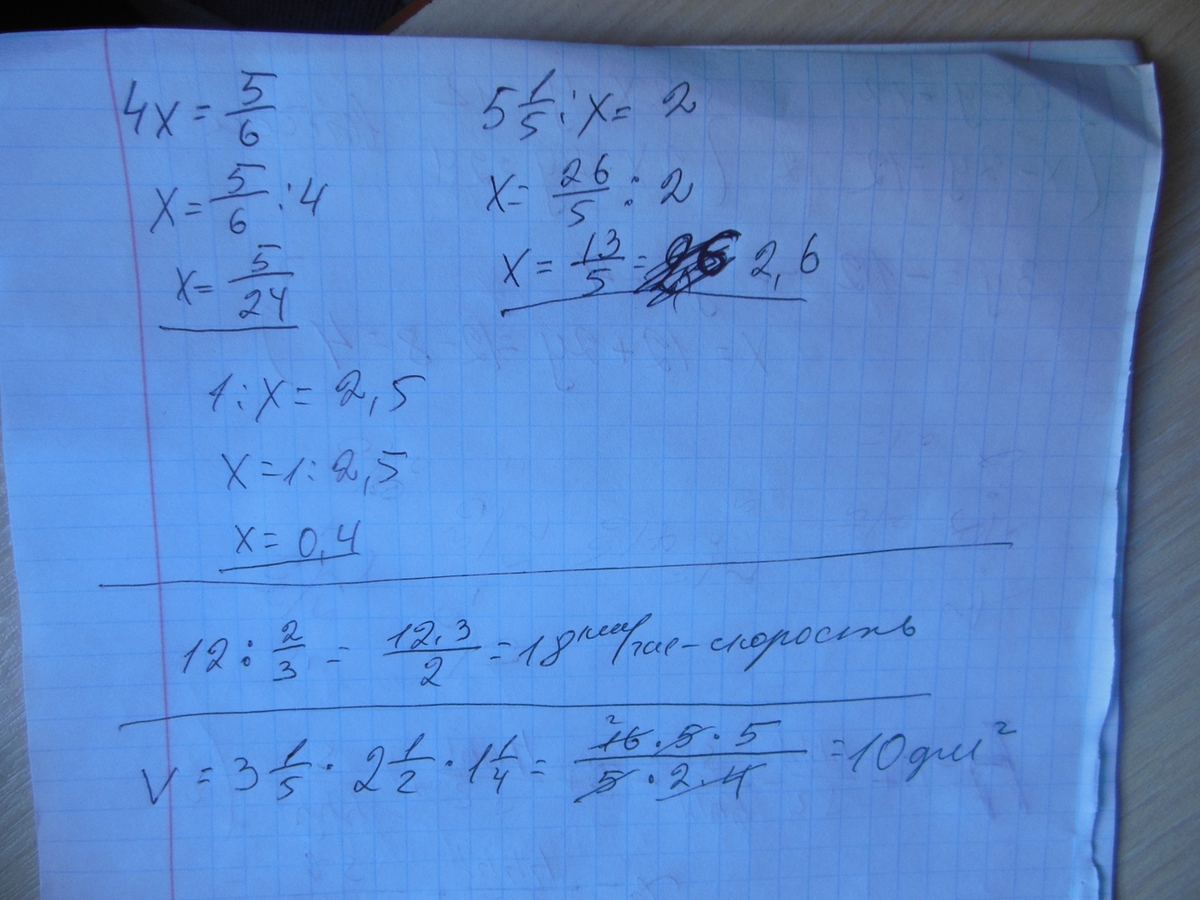 4x = 5/6
x = 5/6 : 4
x = 5/24
5 1/5 : x = 2
x = 26/5 : 2
x = 13/5 = 2,6
1 : x = 2,5
x = 1 : 2,5
x = 0,4
12 : 2/3 = 12·3/2 = 18 км/час - скорость
V = 3 1/5 · 2 1/2 · 1 1/4 = 16·5·5/5·2·4 = 10 дм²